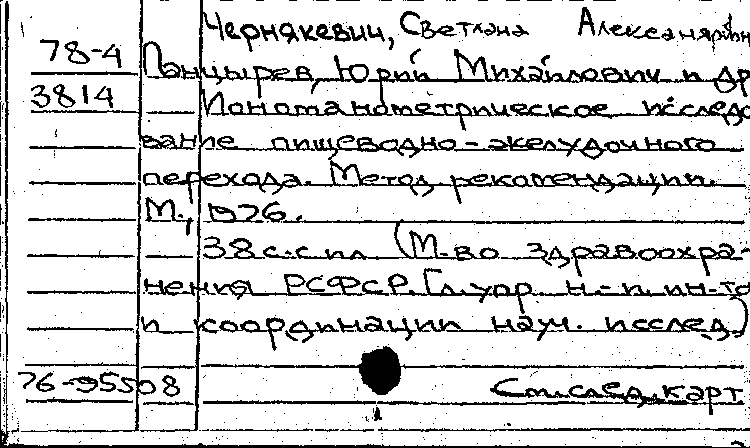 Чернякевич, Светлана Александровн
78-4
Панцырев, Юрий Михайлович и др
3814
Иономанометрическое исследо
вание пищеводно-желудочного
перехода. Метод. рекомендации.
М., 1976.
38 с. с ил. (М-во здравоохра-
нения РСФСР. Гл. упр. н.-и. ин-тов
и координации науч. исслед.)
76-95508
См. след. карт.